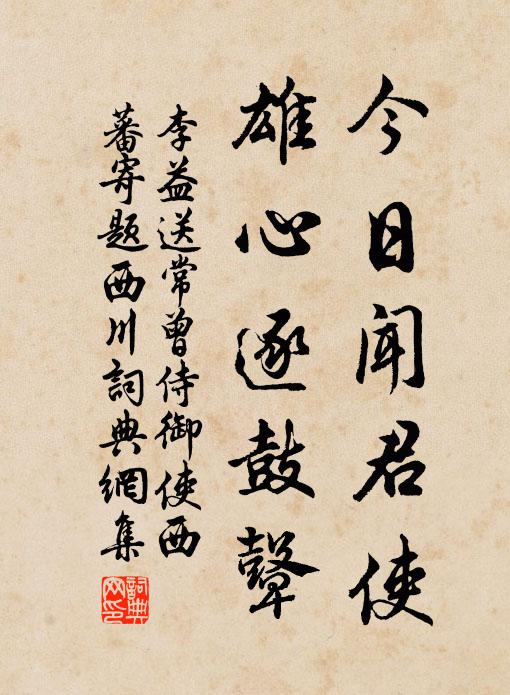 今日聞君使
雄心逐鼓鼙
李益送常曾侍御使西
蕃寄題西川詞典網集
詞典網印